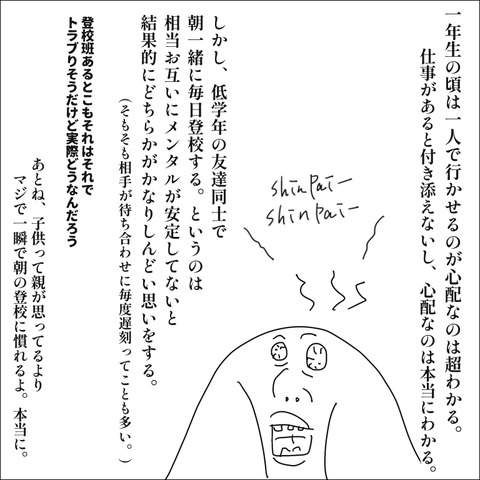 一年生の頃は一人で行かせるのが心配なのは超わかる。
仕事があると付き添えないし、心配なのは本当にわかる。
shinpaiー
shinpaiー
しかし、低学年の友達同士で
朝一緒に毎日登校する。というのは
相当お互いにメンタルが安定してないと
結果的にどちらかがかなりしんどい思いをする。
(そもそも相手が待ち合わせに毎度遅刻ってことも多い。)
登校班あるとこもそれはそれで
トラブりそうだけど実際どうなんだろう
あとね、子供って親が思ってるより
マジで一瞬で朝の登校に慣れるよ。本当に。